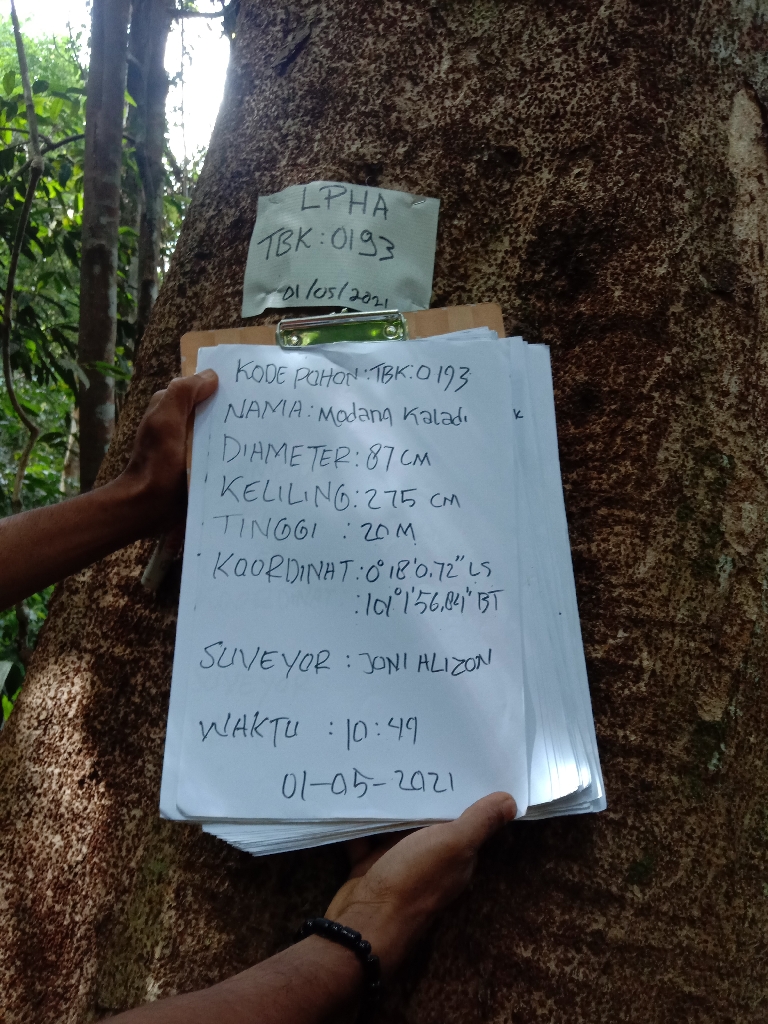 LPHA
TBK:0193
01/05/2021
KODE POHON:TBK:0193
NAMA: Modang Kaladi
DIAMETER: 87 CM
KELILING: 275 CM
TINGGI : 20 M
KOORDINAT: 0° 18' 0.72" LS
: 101° 1' 56.84" BT
SUVEYOR : JONI ALIZON
WAKTU : 10:49
01-05-2021